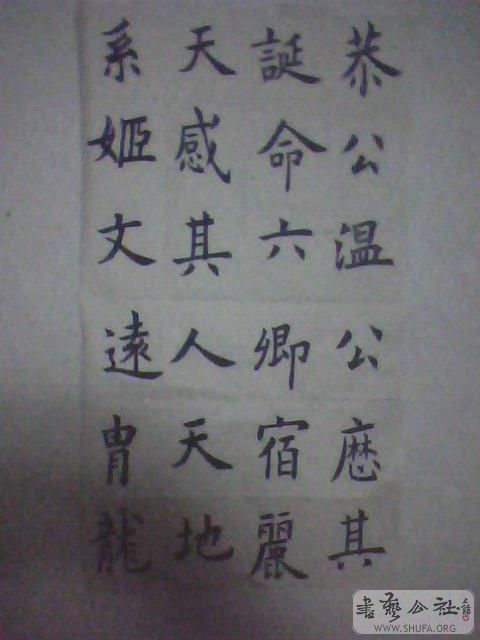 恭公温公其
誕命六卿宿麗
天感其人天地
系姬文遠胄龍
書藝公社
WWW.SHUFA.ORG